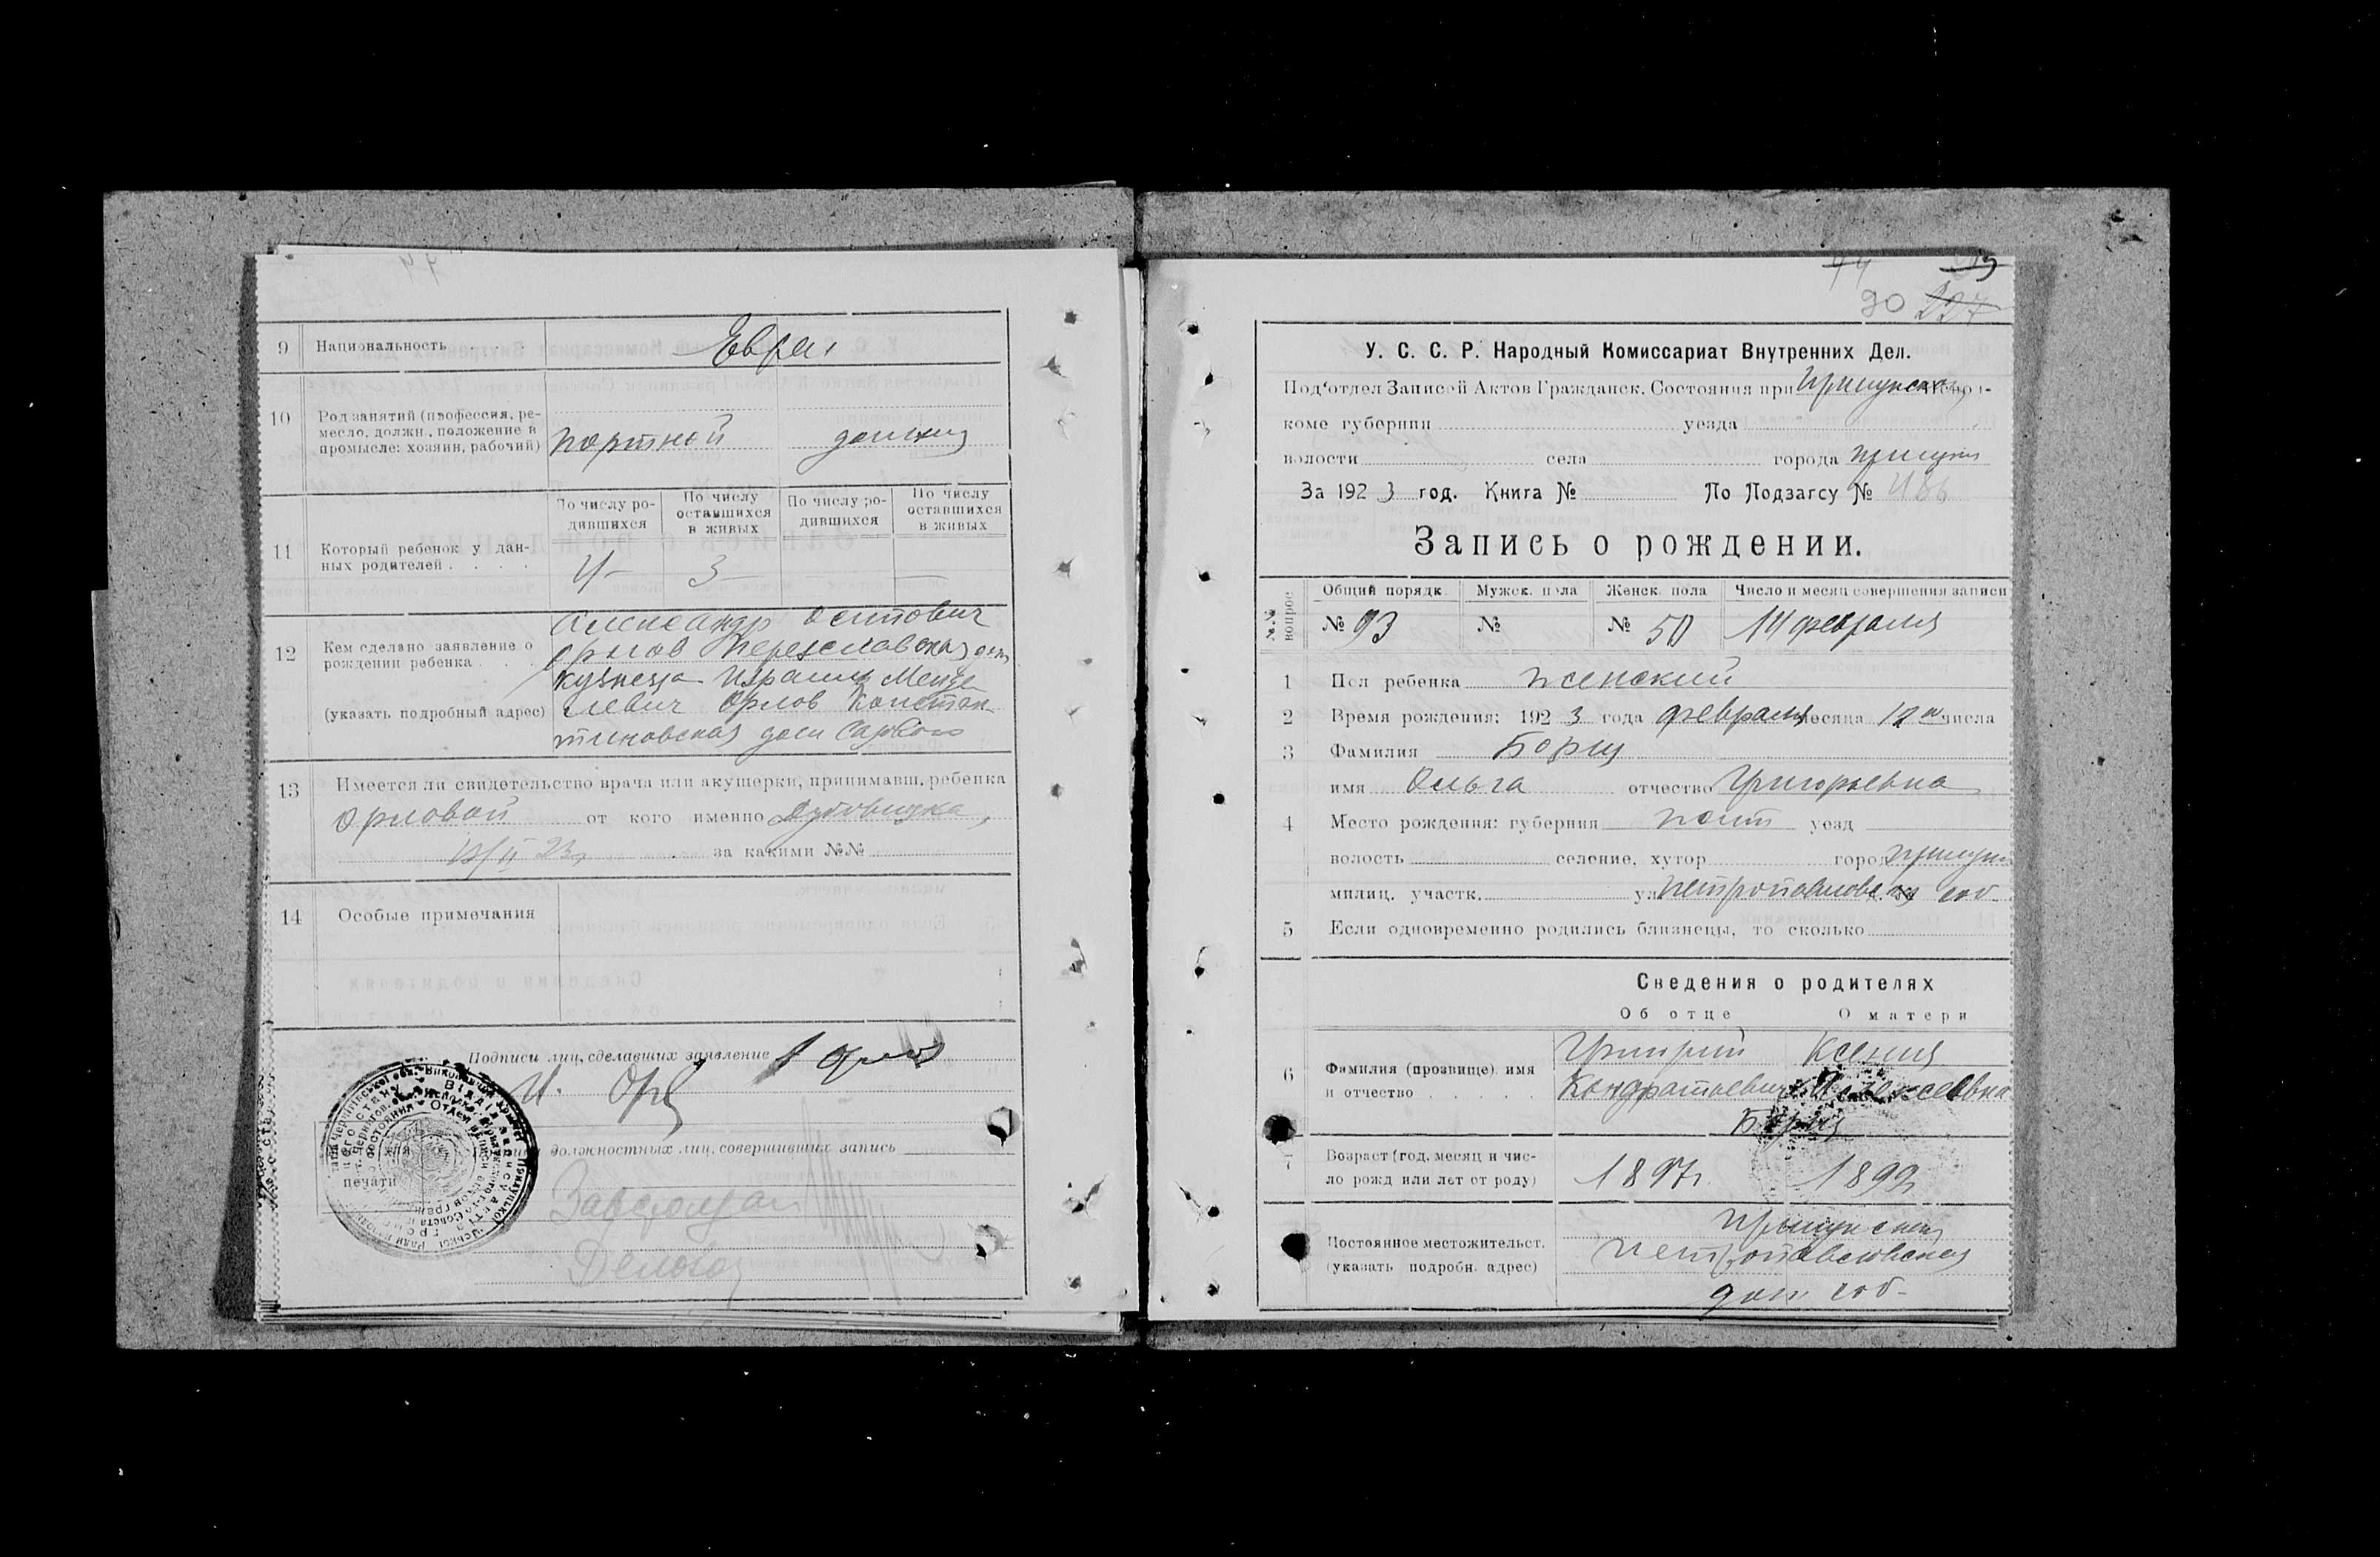 9 Национальность Евреи
10 Род занятий (профессия, ре-
месло, должн., положение в
промысле: хозяин, рабочий) портной домохоз
По числу ро-
дившихся По числу
оставшихся
в живых По числу ро-
дившихся По числу
оставшихся
в живых
11 Который ребенок у дан-
ных родителей 4 – 3 –
12 Кем сделано заявление о
рождении ребенка
(указать подробный адрес)
Александр Осипович
Орлов Переяславская дом
Кузнеца Израиль Менде-
левич Орлов Констан-
тиновская дом
13 Имеется ли свидетельство врача или акушерки, принимавш. ребенка
Орловой от кого именно
13/II 23г за какими №№
14 Особые примечания
Подписи лиц, сделавших заявление
И. Орл
должностных лиц, совершивших запись
печати
Делов
74
90 227
У. С. С. Р. Народный Комиссариат Внутренних Дел.
Под'отдел Записей Актов Гражданск. Состояния при Прилукском Испол-
коме губернии уезда
волости села города Прилуки
За 1923 год. Книга № По Подзагсу №
Запись о рождении.
№№ вопрос Общий порядк. Мужск. пола Женск. пола Число и месяц совершения записи
№ 93 № № 50 14 февраля
1 Пол ребенка женский
2 Время рождения: 1923 года февраля месяца 12 го числа
3 Фамилия Борщ
имя Ольга отчество Григорьевна
4 Место рождения: губерния Полт уезд
волость селение, хутор город Прилуки
милиц. участк. ул. Петропавловская соб.
5 Если одновременно родились близнецы, то сколько
Сведения о родителях
Об отце О матери
6 Фамилия (прозвище) имя
и отчество
Григорий Ксения
Кондратьевич Алексеевна
Борщ
7 Возраст (год, месяц и чис-
ло рожд или лет от роду) 1897г. 1899г
Постоянное местожительст.
(указать подробн. адрес)
Прилуки
Петропавловская
дом соб.